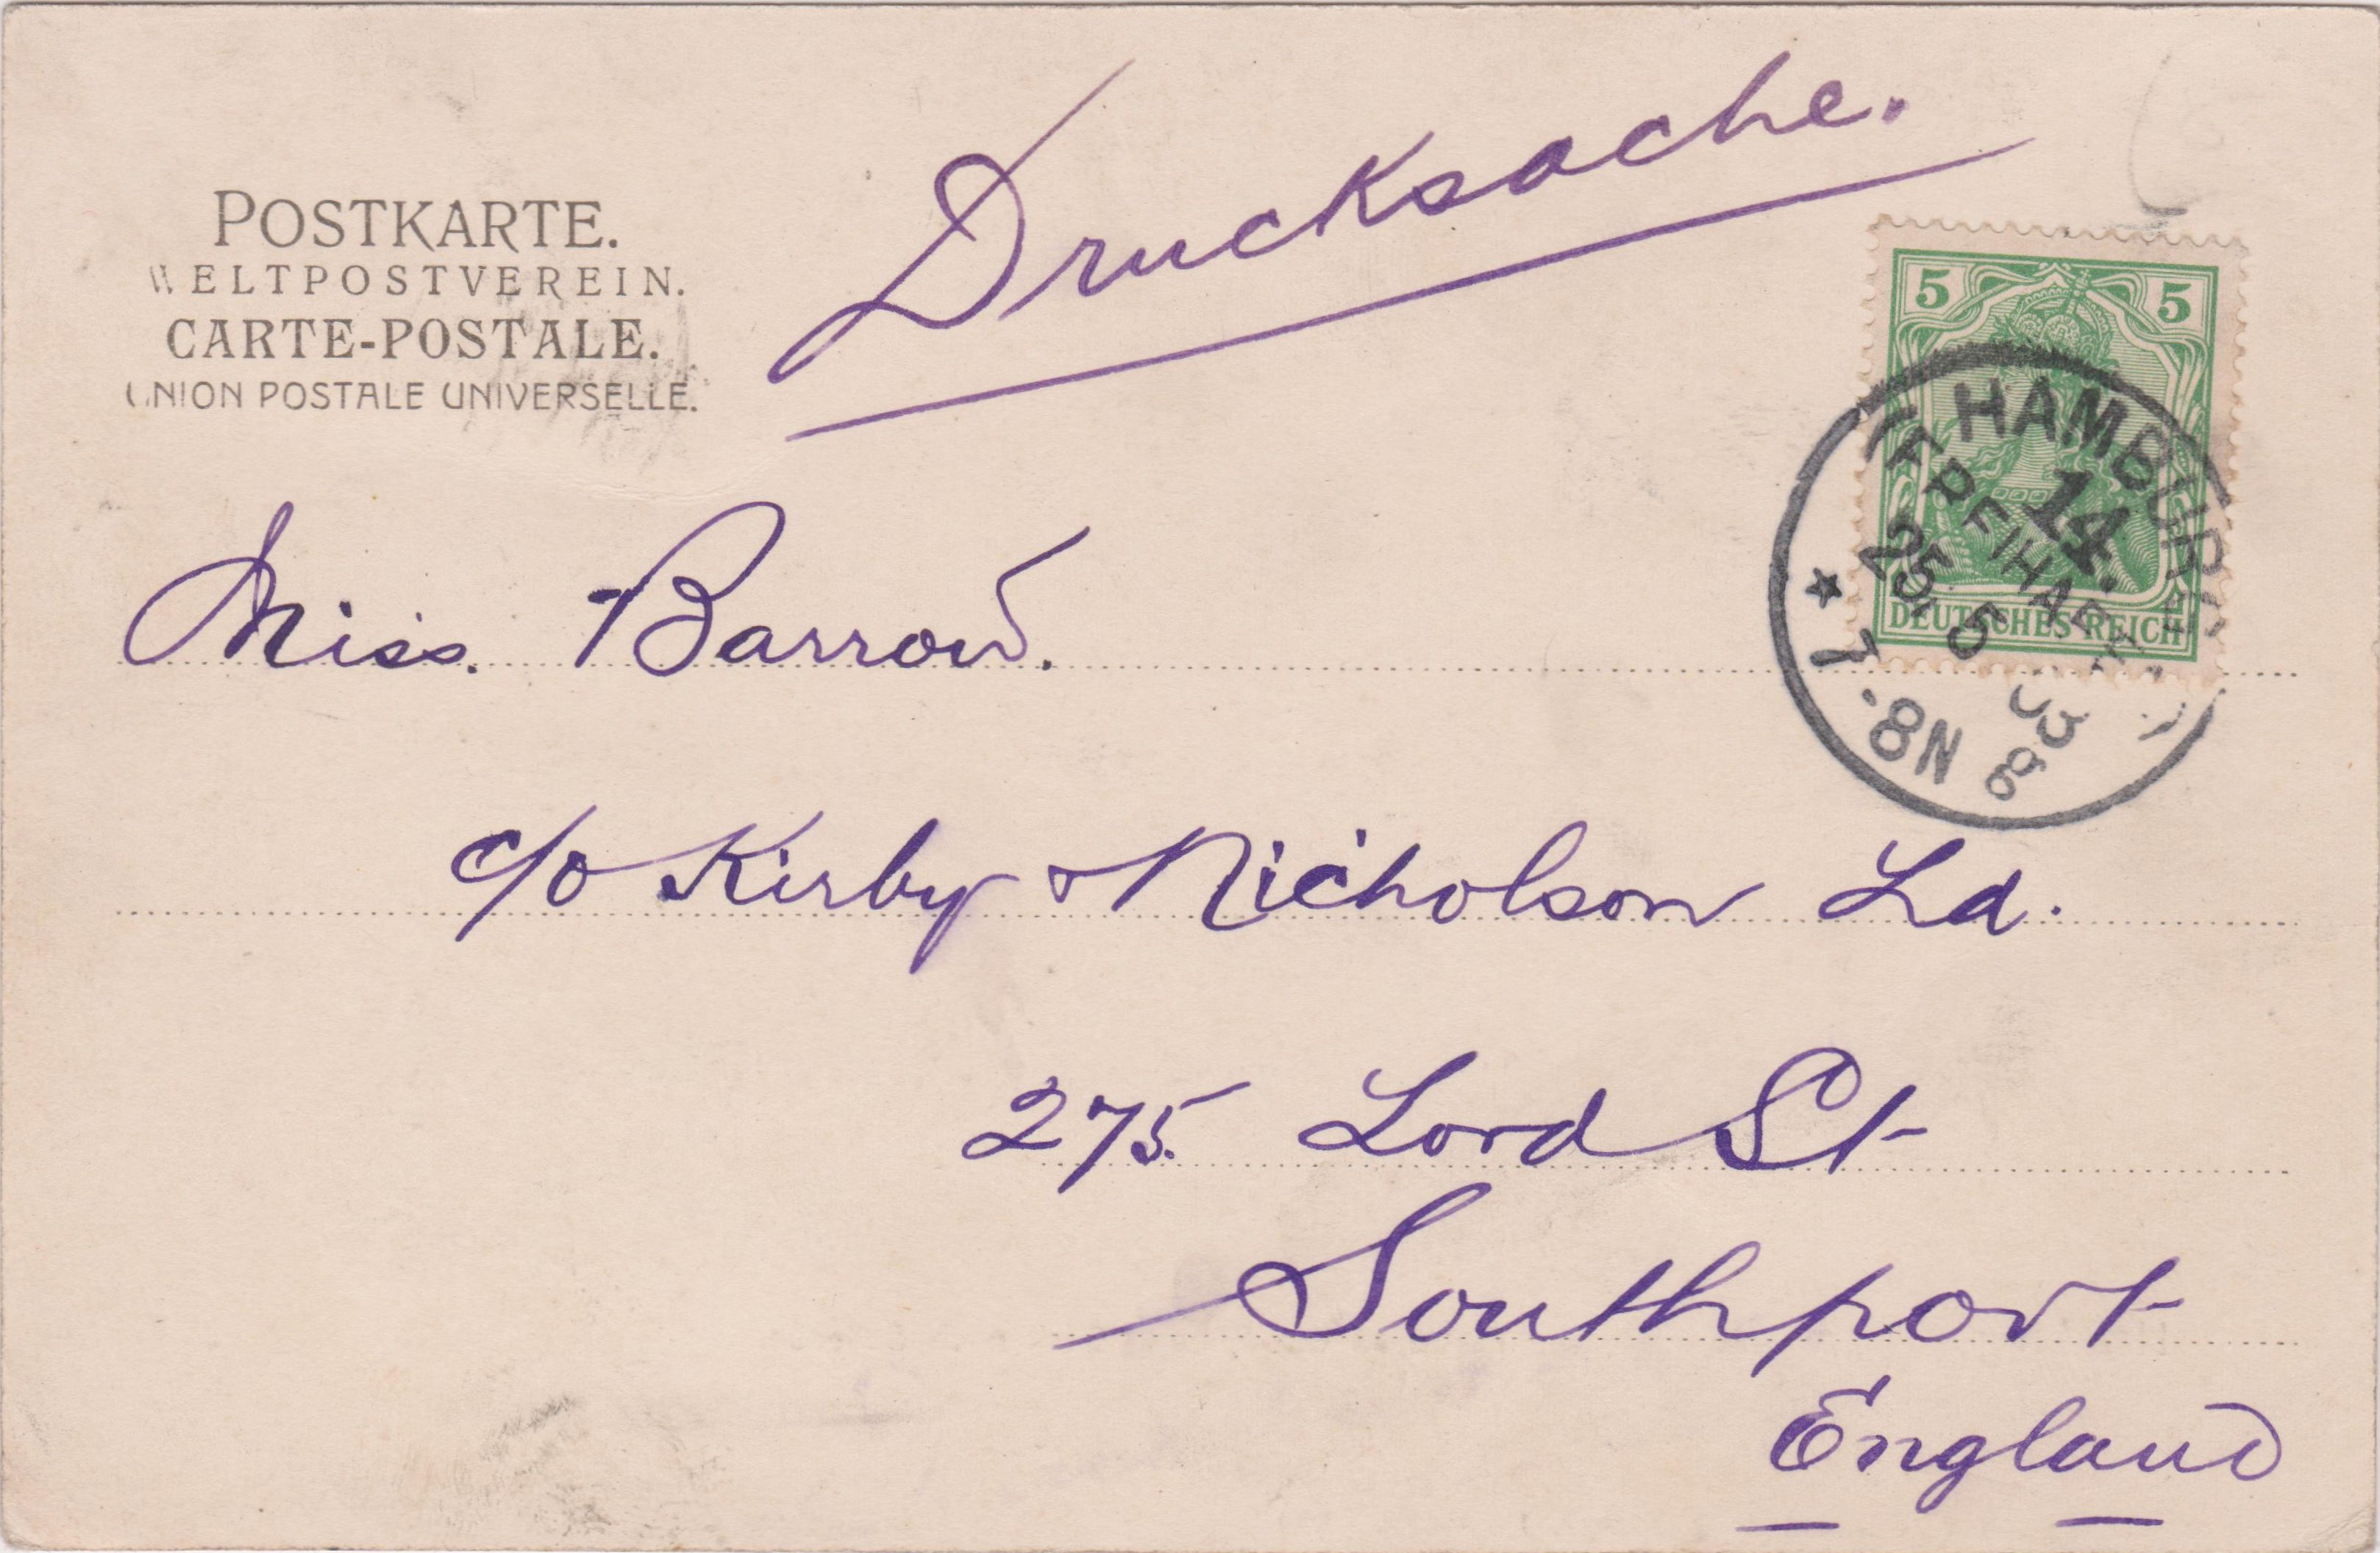 Drucksache.
POSTKARTE.
WELTPOSTVEREIN.
CARTE-POSTALE.
UNION POSTALE UNIVERSELLE.
5 5
DEUTSCHES REICH
HAMBURG
14.
FREIHAFEN
25. 5 03
7.-8N
Miss. Barrow.
c/o Kirby & Nicholson Ld.
275. Lord St
Southport
England